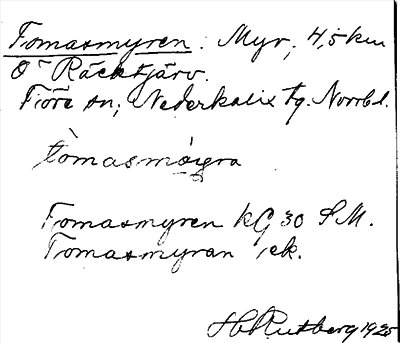 Tomasmyren: Myr, 4,5 km
O Räcktjärv.
Töre sn, Nederkalix tg. Norrb l.
tomasmøyra
Tomasmyren kG 30 SM.
Tomasmyran ek.
H Rutberg 1925